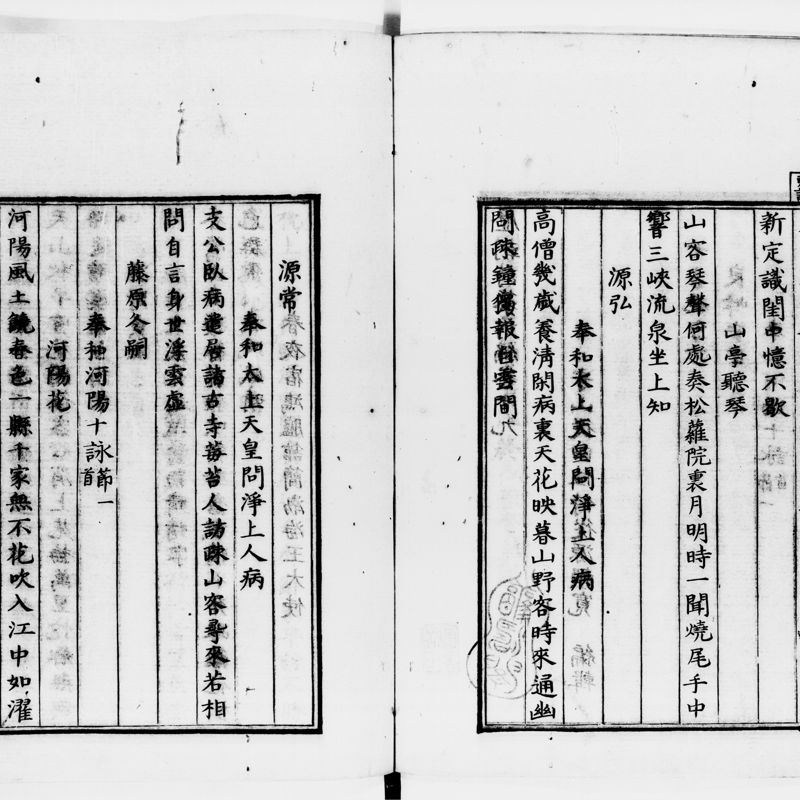 新定識閨中憶不歇
山亭聽琴
山容琴聲何處奏松蘿院裏月明時一聞燒尾手中
響三峽流泉坐上知
源弘
奉和太上天皇問淨上人病
高僧幾歲養清閑病裏天花映暮山野客時來通幽
問疎鐘獨報白雲間
源常
奉和太上天皇問淨上人病
支公臥病遣居諸古寺莓苔人訪疎山客尋來若相
問自言身世浮雲虛
藤原冬嗣
奉和河陽十詠節一首
河陽花
河陽風土饒春色一縣千家無不花吹入江中如濯